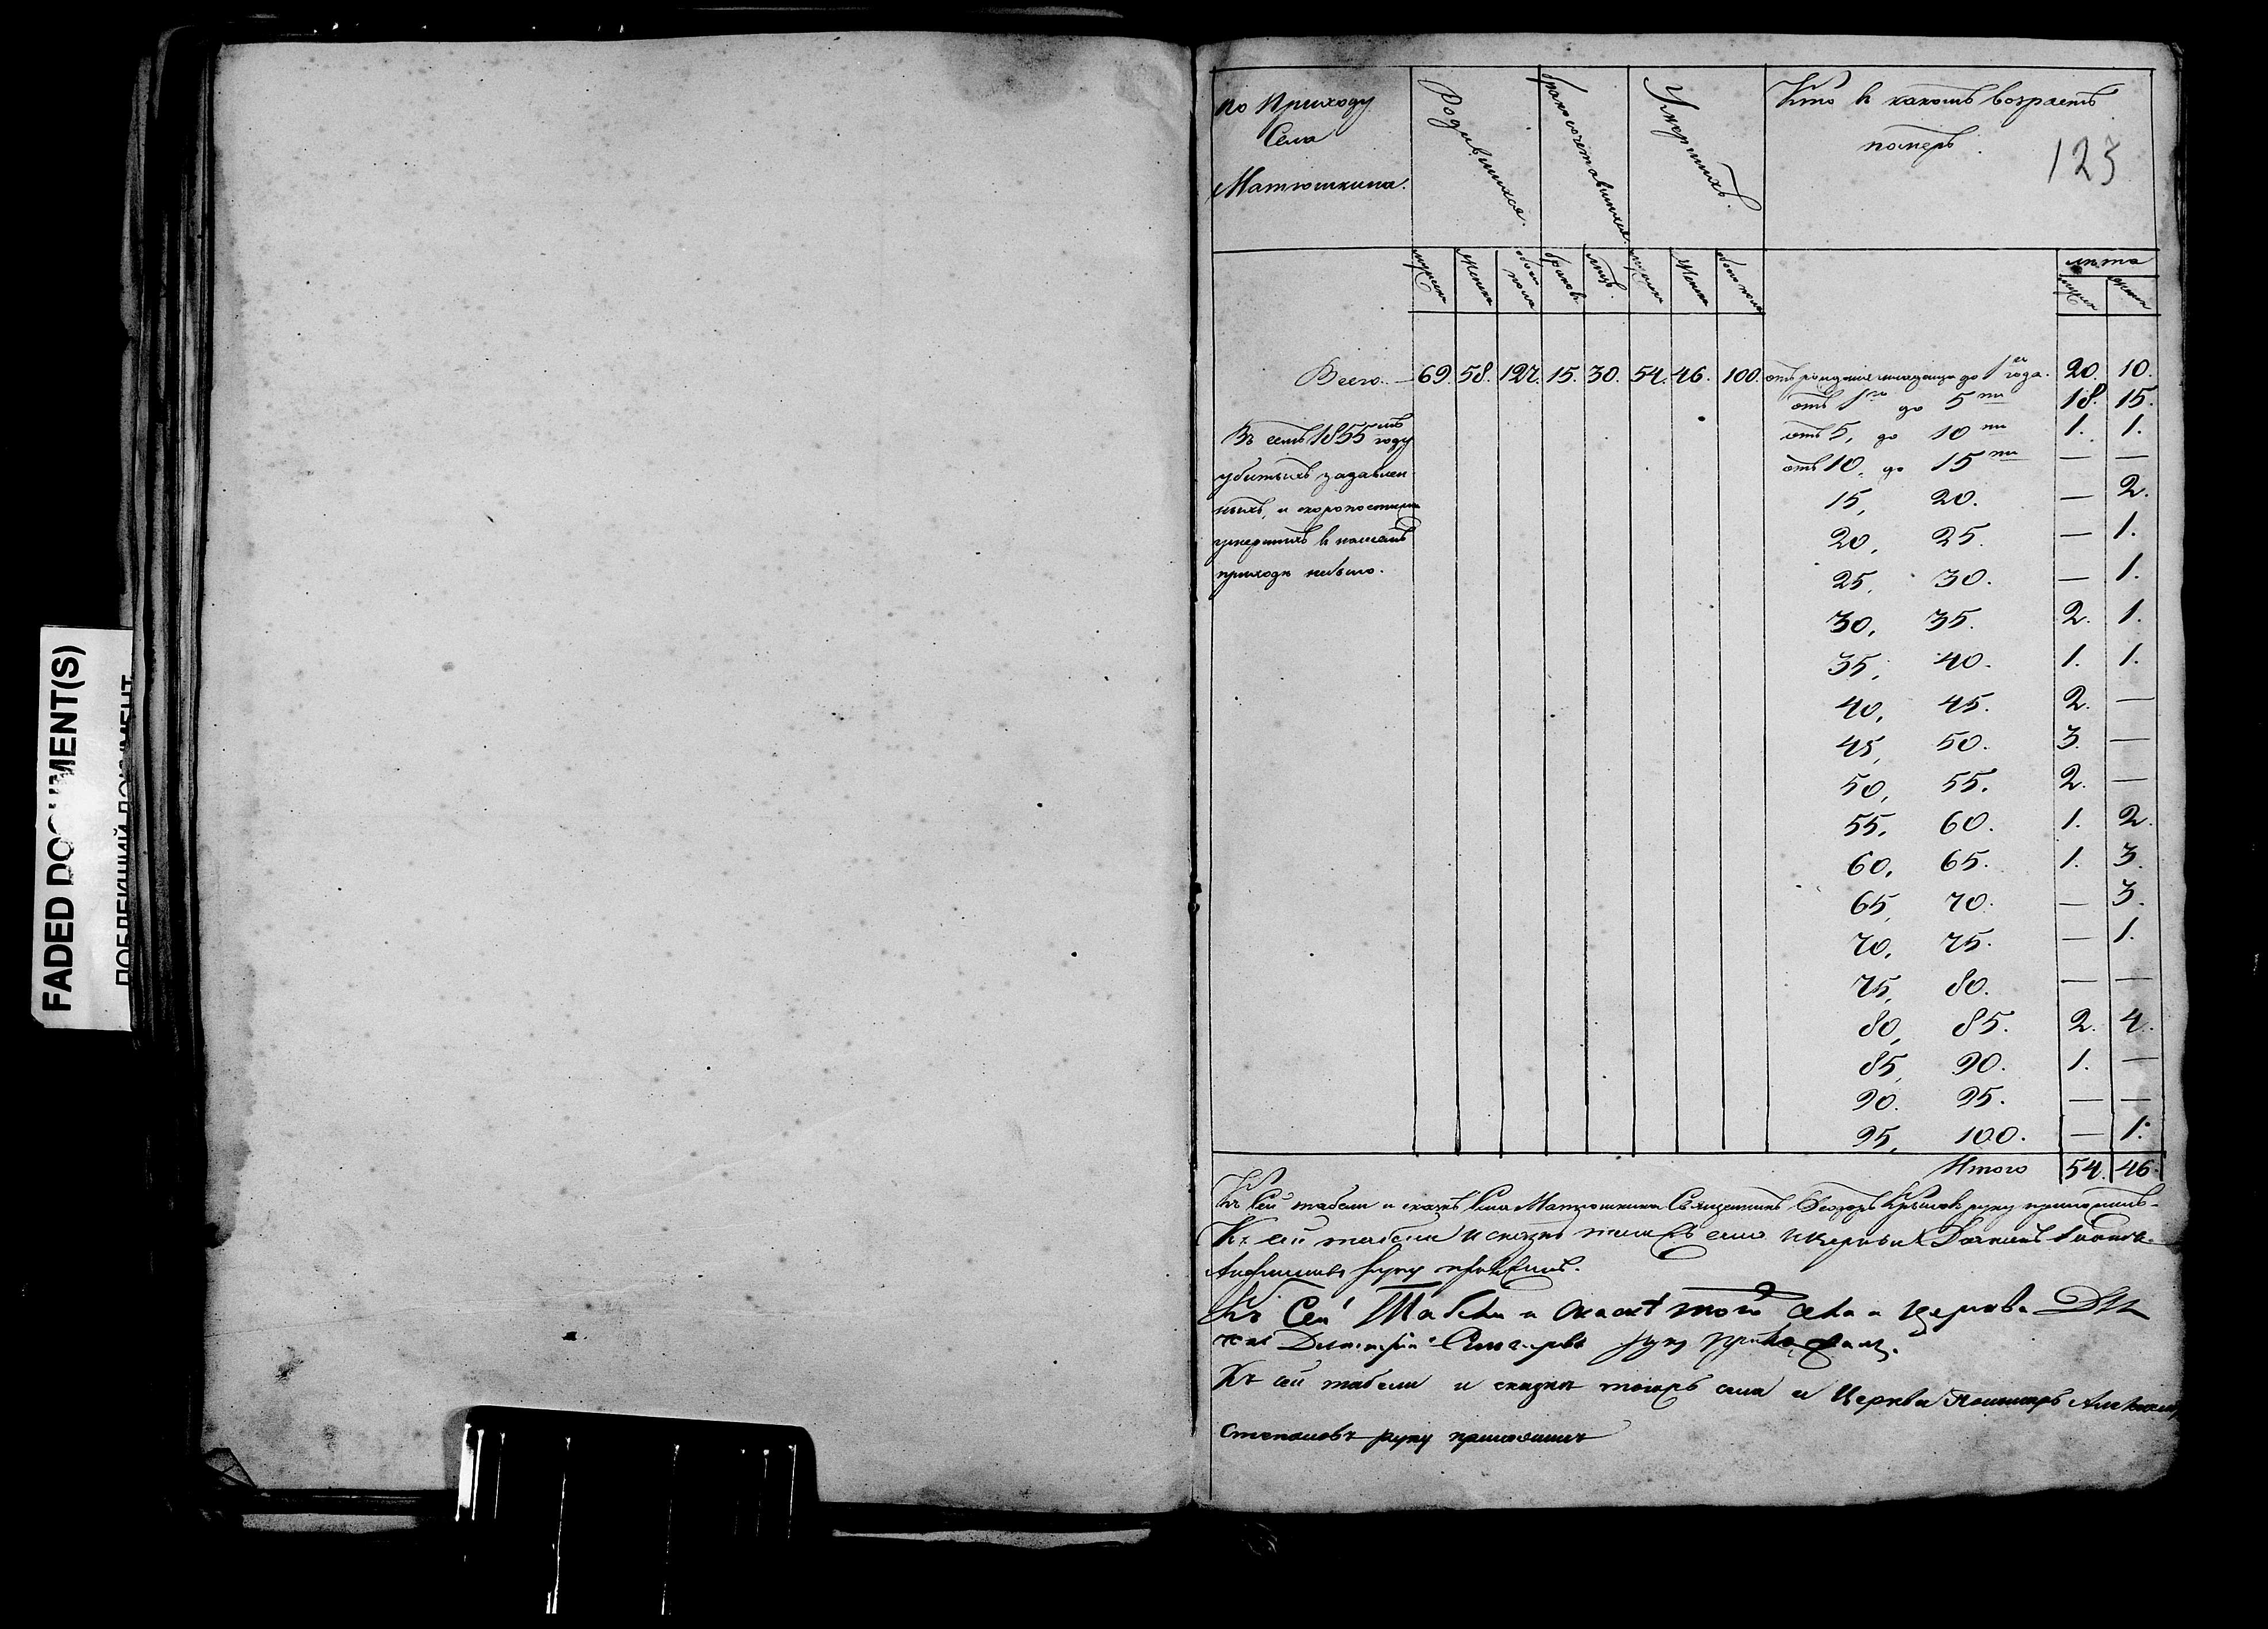 FADED DOCUMENT(S)
по Приходу
Села
Матюшкина.
Родившихся.
Бракосочетавшихся.
Умершихъ.
Кто в какомъ возрастѣ
померъ.
123
мужска
женска
обоего пола
браковъ
лицъ.
мужска
женска
обоего пола
лѣта
мужск
женск
Всего. — 69. 58. 127. 15. 30. 54. 46. 100. отъ рожденія младенца до 1го года. 20. 10.
отъ 1го до 5ти 18. 15.
отъ 5, до 10ти 1. 1.
отъ 10, до 15ти — —
15, 20. — 2.
20, 25. — 1.
25, 30. — 1.
30, 35. 2. 1.
35, 40. 1. 1.
40, 45. 2. —
45, 50. 3. —
50, 55. 2. —
55, 60. 1. 2.
60, 65. 1. 3.
65, 70. — 3.
70, 75. — 1.
75, 80. — —
80, 85. 2. 4.
85, 90. 1. —
90. 95. — —
95, 100. — 1.
Итого 54. 46.
Въ семъ 1855мъ году
убитыхъ задавлен
ныхъ, и скоропостижно
умершихъ в нашемъ
приходѣ небыло.
Къ Сей табели и сказкѣ Села Матюшкина Священникъ Ѳеодоръ руку приложилъ
Къ сей табели и сказкѣ тогожъ села и церкви
руку приложилъ.
Къ Сей Табели и сказкѣ того села и церкви Дья
Димитрій руку приложилъ.
Къ сей табели и сказкѣ тогожъ села и Церкви Пономарь
Степановъ руку приложилъ